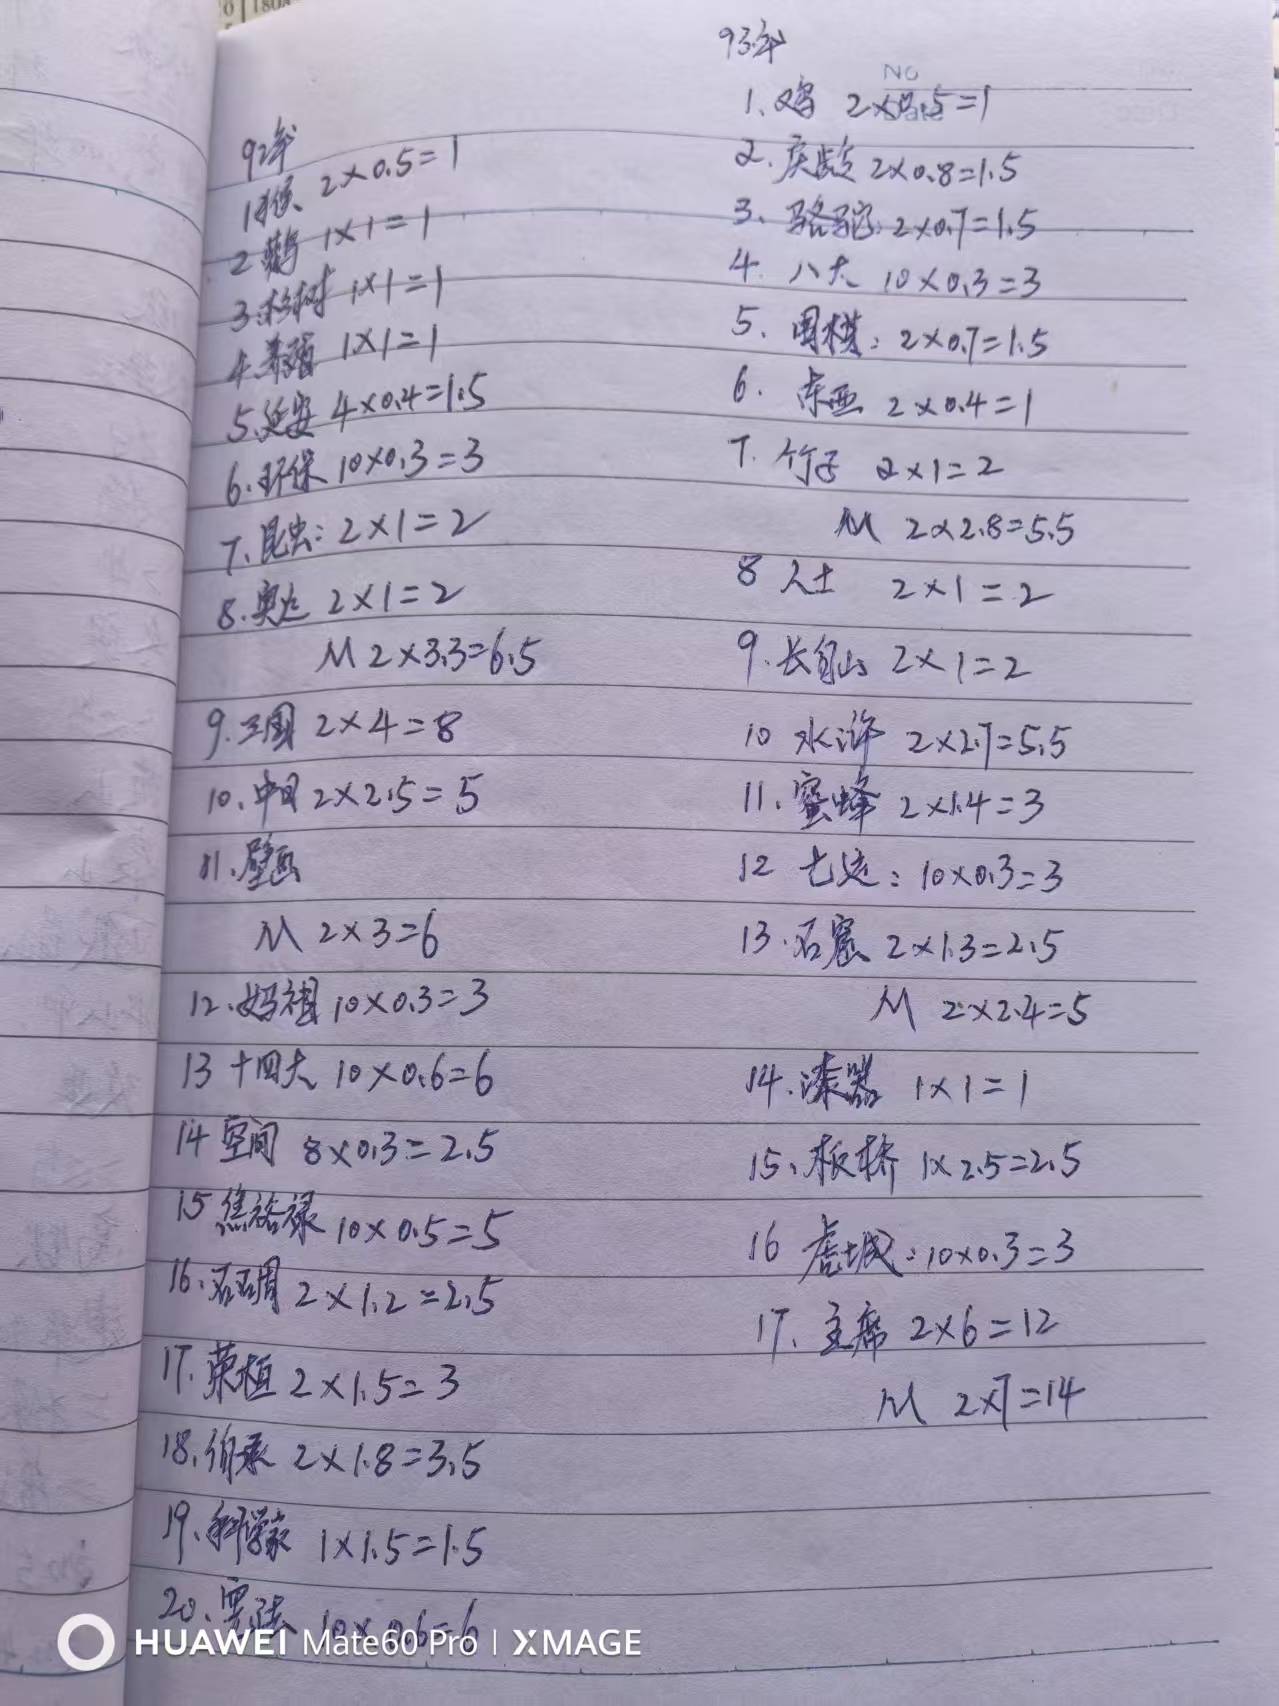 92年
1猴 2×0.5=1
2鹳 1×1=1
3.杉树 1×1=1
4.养殖 1×1=1
5.延安 4×0.4=1.5
6.环保 10×0.3=3
7.昆虫: 2×1=2
8.奥运 2×1=2
M 2×3.3=6.5
9.三国 2×4=8
10、中日 2×2.5=5
11、壁画
M 2×3=6
12、妈祖 10×0.3=3
13 十四大 10×0.6=6
14 空间 8×0.3=2.5
15 焦裕禄 10×0.5=5
16、石周 2×1.2=2.5
17.荣桓 2×1.5=3
18、伯承 2×1.8=3.5
19、科学家 1×1.5=1.5
20、宪法 10×0.6=6
93年
No
1、鸡 2×0.5=1
2.庆龄 2×0.8=1.5
3、骆驼: 2×0.7=1.5
4. 八大 10×0.3=3
5、围棋: 2×0.7=1.5
6. 东亚 2×0.4=1
7. 竹子 2×1=2
M 2×2.8=5.5
8 人士 2×1=2
9.长白山 2×1=2
10 水浒 2×2.7=5.5
11、蜜蜂 2×1.4=3
12 七运: 10×0.3=3
13.石窟 2×1.3=2.5
M 2×2.4=5
14.漆器 1×1=1
15、板桥 1×2.5=2.5
16 虎城: 10×0.3=3
17、主席 2×6=12
M 2×7=14
HUAWEI Mate60 Pro | XMAGE